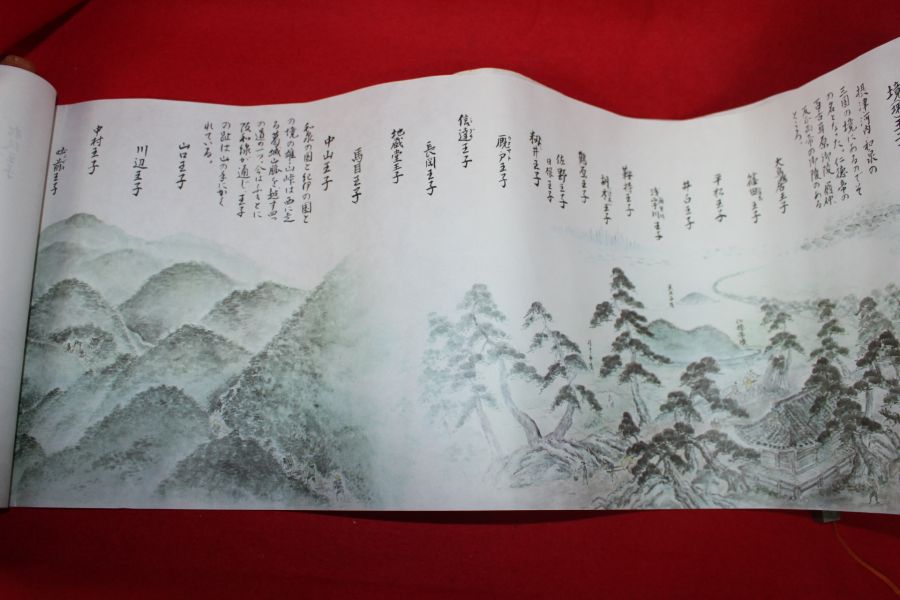 境王子
摂津河内和泉の
三国の境にあるのでそ
の名となった。仁徳帝の
百舌鳥原御陵、履仲
反正両帝の御陵のある
ところ。
大鳥居王子
篠田王子
平松王子
井口王子
浅宇川王子
鞍持王子
胡木王子
鶴原王子
佐野王子
日根王子
籾井王子
厩戸王子
信達王子
長岡王子
地蔵堂王子
馬目王子
中山王子
和泉の国と紀伊の国と
の境の雄ノ山峠は西に走
る葛城山脈を越す四つ
の道の一つ、今はふもとに
阪和線が通じ、王子
の趾は山の手に行く
れている。
山口王子
川辺王子
中村王子
吐前王子